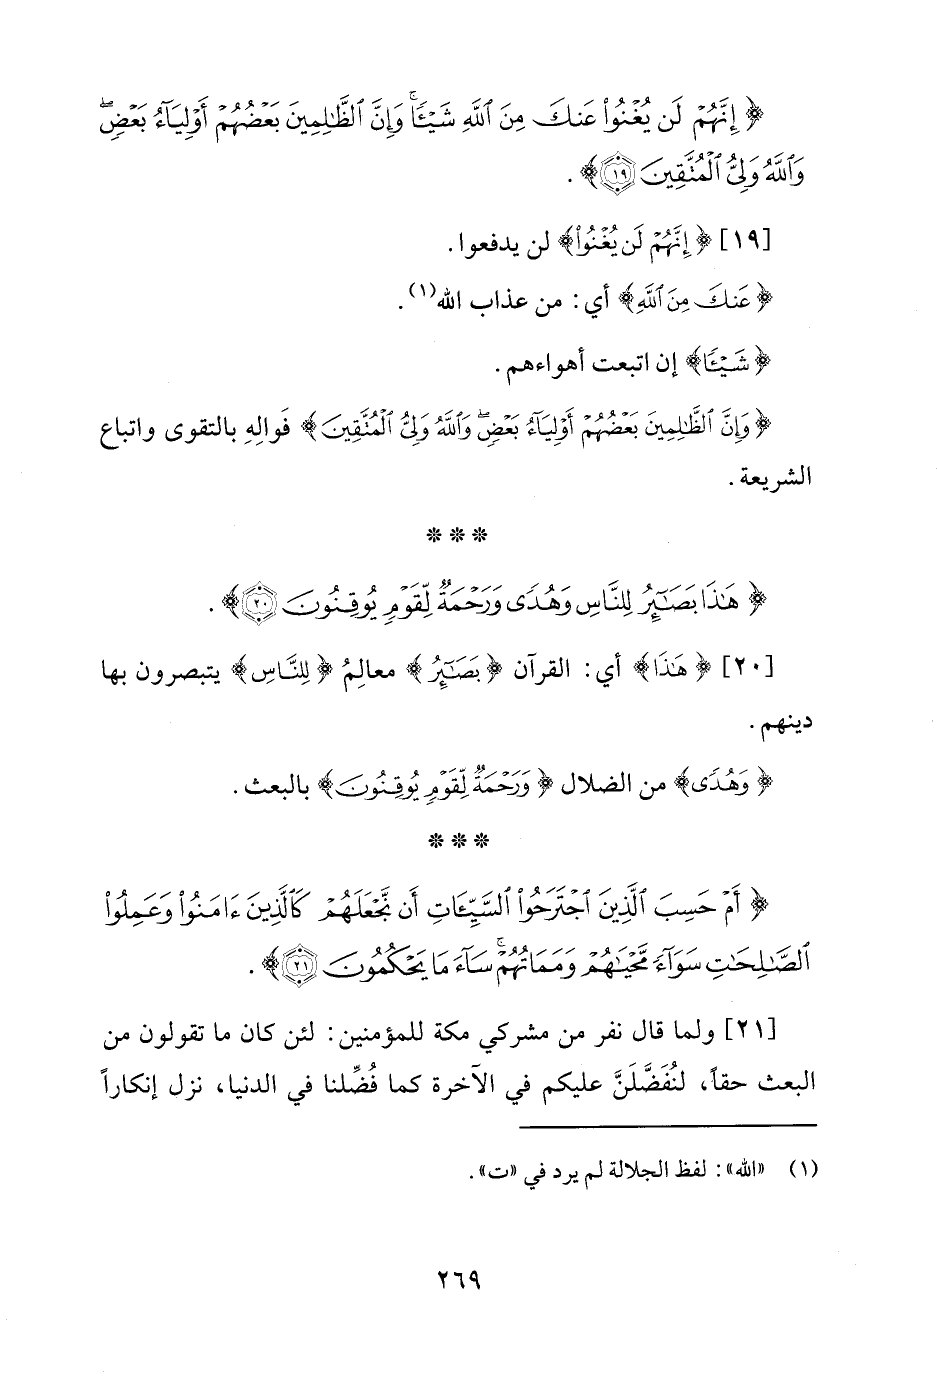 ﴿إِنَّهُمْ لَن يُغْنُوا۟ عَنكَ مِنَ ٱللَّهِ شَيْـًٔا ۚ وَإِنَّ ٱلظَّـٰلِمِينَ بَعْضُهُمْ أَوْلِيَآءُ بَعْضٍ ۖ
وَٱللَّهُ وَلِىُّ ٱلْمُتَّقِينَ ١٩﴾.
[١٩] ﴿إِنَّهُمْ لَن يُغْنُوا۟﴾ لن يدفعوا.
﴿عَنكَ مِنَ ٱللَّهِ﴾ أي: من عذاب الله(١).
﴿شَيْـًٔا﴾ إن اتبعت أهواءهم.
﴿وَإِنَّ ٱلظَّـٰلِمِينَ بَعْضُهُمْ أَوْلِيَآءُ بَعْضٍ ۖ وَٱللَّهُ وَلِىُّ ٱلْمُتَّقِينَ﴾ فَوالِهِ بالتقوى واتباع
الشريعة.
* * *
﴿هَـٰذَا بَصَـٰٓئِرُ لِلنَّاسِ وَهُدًى وَرَحْمَةٌ لِّقَوْمٍ يُوقِنُونَ ٢٠﴾.
[٢٠] ﴿هَـٰذَا﴾ أي: القرآن ﴿بَصَـٰٓئِرُ﴾ معالِمُ ﴿لِلنَّاسِ﴾ يتبصرون بها
دينهم.
﴿وَهُدًى﴾ من الضلال ﴿وَرَحْمَةٌ لِّقَوْمٍ يُوقِنُونَ﴾ بالبعث.
* * *
﴿أَمْ حَسِبَ ٱلَّذِينَ ٱجْتَرَحُوا۟ ٱلسَّيِّـَٔاتِ أَن نَّجْعَلَهُمْ كَٱلَّذِينَ ءَامَنُوا۟ وَعَمِلُوا۟
ٱلصَّـٰلِحَـٰتِ سَوَآءً مَّحْيَاهُمْ وَمَمَاتُهُمْ ۚ سَآءَ مَا يَحْكُمُونَ ٢١﴾.
[٢١] ولما قال نفر من مشركي مكة للمؤمنين: لئن كان ما تقولون من
البعث حقاً، لنُفَضَّلَنَّ عليكم في الآخرة كما فُضِّلنا في الدنيا، نزل إنكاراً
(١) «الله»: لفظ الجلالة لم يرد في «ت».
٢٦٩